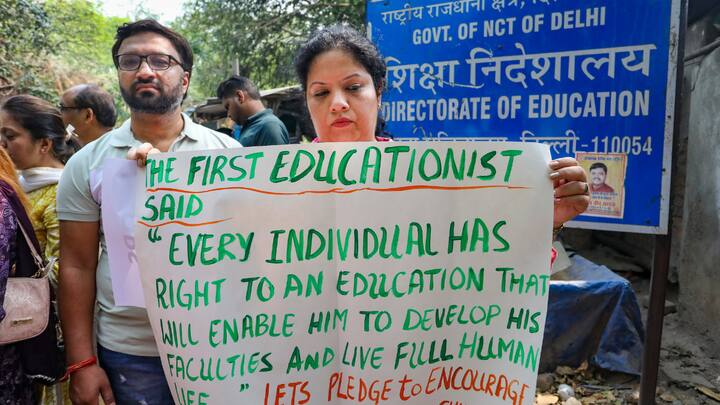 राष्ट्रीय राजधानी क्षेत्र,
GOVT. OF NCT OF DELHI
शिक्षा निदेशालय
DIRECTORATE OF EDUCATION
110054
THE FIRST EDUCATIONIST
SAID
"EVERY INDIVIDUAL HAS
RIGHT TO AN EDUCATION THAT
WILL ENABLE HIM TO DEVELOP HIS
FACULTIES AND LIVE FULL HUMAN
LIFE." LETS PLEDGE to ENCOURAGE